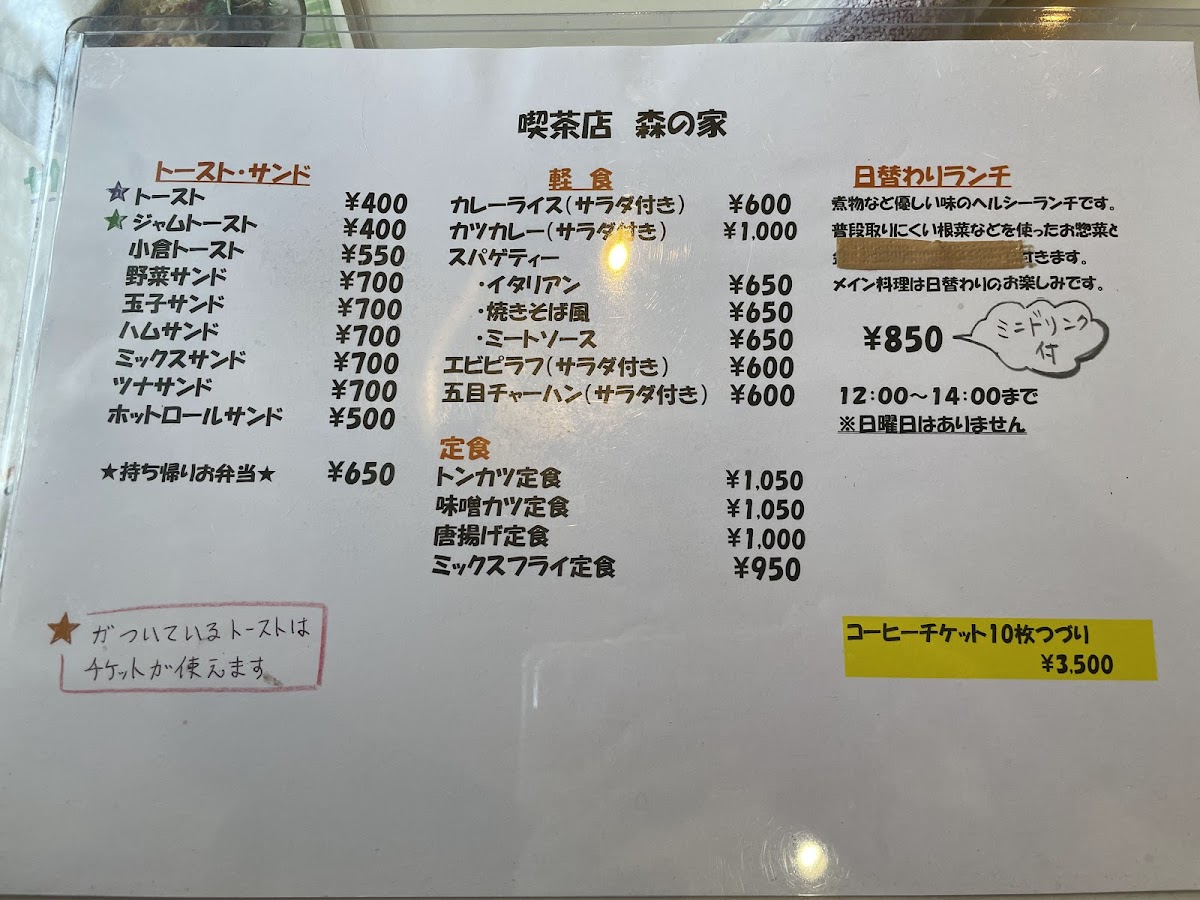 喫茶店 森の家
トースト・サンド
★トースト ¥400
★ジャムトースト ¥400
小倉トースト ¥550
野菜サンド ¥700
玉子サンド ¥700
ハムサンド ¥700
ミックスサンド ¥700
ツナサンド ¥700
ホットロールサンド ¥500
★持ち帰りお弁当★ ¥650
★がついているトーストは
チケットが使えます
軽食
カレーライス(サラダ付き) ¥600
カツカレー(サラダ付き) ¥1,000
スパゲティー
・イタリアン ¥650
・焼きそば風 ¥650
・ミートソース ¥650
エビピラフ(サラダ付き) ¥600
五目チャーハン(サラダ付き) ¥600
定食
トンカツ定食 ¥1,050
味噌カツ定食 ¥1,050
唐揚げ定食 ¥1,000
ミックスフライ定食 ¥950
日替わりランチ
煮物など優しい味のヘルシーランチです。
普段取りにくい根菜などを使ったお惣菜と
付きます。
メイン料理は日替わりのお楽しみです。
¥850 ミニドリンク
付
12:00〜14:00まで
※日曜日はありません
コーヒーチケット10枚つづり
¥3,500